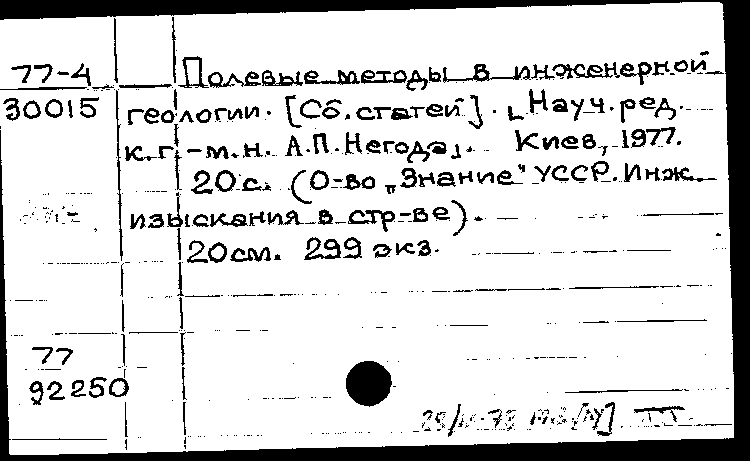 77-4 Полевые методы в инженерной
30015 геологии. [Сб. статей]. ⌞Науч. ред.
к.г.-м.н. А.П. Негода⌟. Киев, 1977.
20 с. (О-во „Знание" УССР. Инж.
изыскания в стр-ве).
20 см. 299 экз.
77
92250